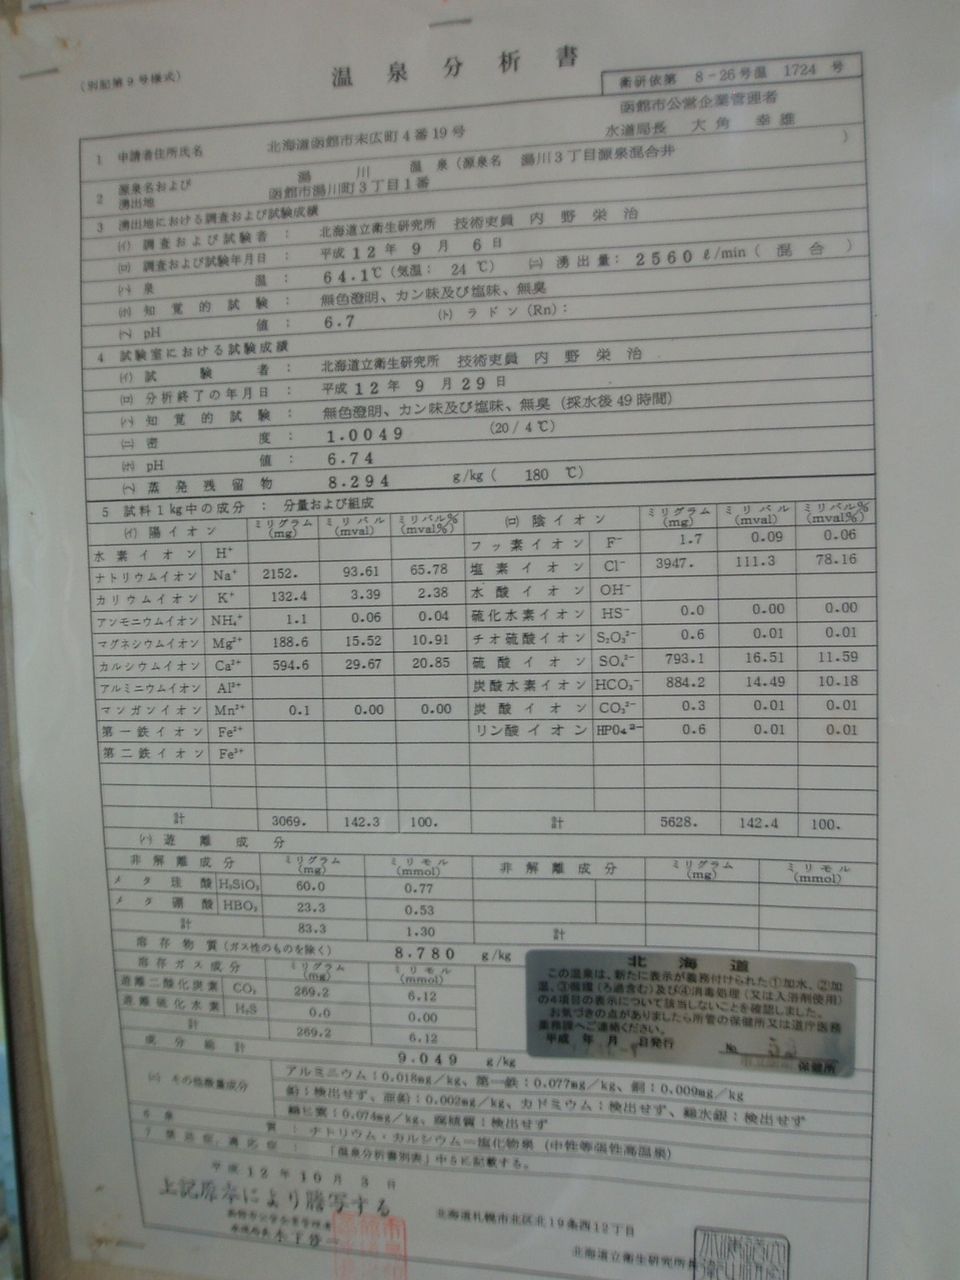 (別記第9号様式)
温泉分析書
衛研依第 8-26号温 1724 号
函館市公営企業管理者
1 申請者住所氏名 北海道函館市末広町4番19号 水道局長 大角 幸雄
2 源泉名および湧出地 湯川 温泉(源泉名 湯川3丁目源泉混合井 )
函館市湯川町3丁目1番
3 湧出地における調査および試験成績
(イ) 調査および試験者: 北海道立衛生研究所 技術吏員 内野栄治
(ロ) 調査および試験年月日: 平成12年9月6日
(ハ) 泉温: 64.1℃(気温: 24℃) (ニ) 湧出量: 2560 ℓ/min(混合)
(ホ) 知覚的試験: 無色澄明、カン味及び塩味、無臭
(ヘ) pH値: 6.7 (ト) ラドン(Rn):
4 試験室における試験成績
(イ) 試験者: 北海道立衛生研究所 技術吏員 内野栄治
(ロ) 分析終了の年月日: 平成12年9月29日
(ハ) 知覚的試験: 無色澄明、カン味及び塩味、無臭(採水後49時間)
(ニ) 密度: 1.0049 (20/4℃)
(ホ) pH値: 6.74
(ヘ) 蒸発残留物 8.294 g/kg( 180 ℃)
5 試料1kg中の成分: 分量および組成
(イ) 陽イオン ミリグラム(mg) ミリバル(mval) ミリバル%(mval%) (ロ) 陰イオン ミリグラム(mg) ミリバル(mval) ミリバル%(mval%)
水素イオン H⁺ フッ素イオン F⁻ 1.7 0.09 0.06
ナトリウムイオン Na⁺ 2152. 93.61 65.78 塩素イオン Cl⁻ 3947. 111.3 78.16
カリウムイオン K⁺ 132.4 3.39 2.38 水酸イオン OH⁻
アンモニウムイオン NH₄⁺ 1.1 0.06 0.04 硫化水素イオン HS⁻ 0.0 0.00 0.00
マグネシウムイオン Mg²⁺ 188.6 15.52 10.91 チオ硫酸イオン S₂O₃²⁻ 0.6 0.01 0.01
カルシウムイオン Ca²⁺ 594.6 29.67 20.85 硫酸イオン SO₄²⁻ 793.1 16.51 11.59
アルミニウムイオン Al³⁺ 炭酸水素イオン HCO₃⁻ 884.2 14.49 10.18
マンガンイオン Mn²⁺ 0.1 0.00 0.00 炭酸イオン CO₃²⁻ 0.3 0.01 0.01
第一鉄イオン Fe²⁺ リン酸イオン HPO₄²⁻ 0.6 0.01 0.01
第二鉄イオン Fe³⁺
計 3069. 142.3 100. 計 5628. 142.4 100.
(ハ) 遊離成分
非解離成分 ミリグラム(mg) ミリモル(mmol) 非解離成分 ミリグラム(mg) ミリモル(mmol)
メタ珪酸 H₂SiO₃ 60.0 0.77
メタ硼酸 HBO₂ 23.3 0.53
計 83.3 1.30 計
溶存物質(ガス性のものを除く) 8.780 g/kg
溶存ガス成分 ミリグラム(mg) ミリモル(mmol)
遊離二酸化炭素 CO₂ 269.2 6.12
遊離硫化水素 H₂S 0.0 0.00
計 269.2 6.12
成分総計 9.049 g/kg
北海道
この温泉は、新たに表示が義務付けられた①加水、②加
温、③循環(ろ過含む)及び④消毒処理(又は入浴剤使用)
の4項目の表示について該当しないことを確認しました。
お気づきの点がありましたら所管の保健所又は道庁医務
薬務課へご連絡ください。
平成 年 月 日発行 No
保健所
(ニ) その他微量成分 アルミニウム:0.018mg/kg、第一鉄:0.077mg/kg、銅:0.009mg/kg
鉛:検出せず、亜鉛:0.002mg/kg、カドミウム:検出せず、総水銀:検出せず
総ヒ素:0.074mg/kg、腐植質:検出せず
6 泉質: ナトリウム・カルシウム-塩化物泉(中性等張性高温泉)
7 禁忌症、適応症: 「温泉分析書別表」中5に記載する。
平成12年10月3日
上記原本により謄写する
北海道札幌市北区北19条西12丁目
北海道立衛生研究所長